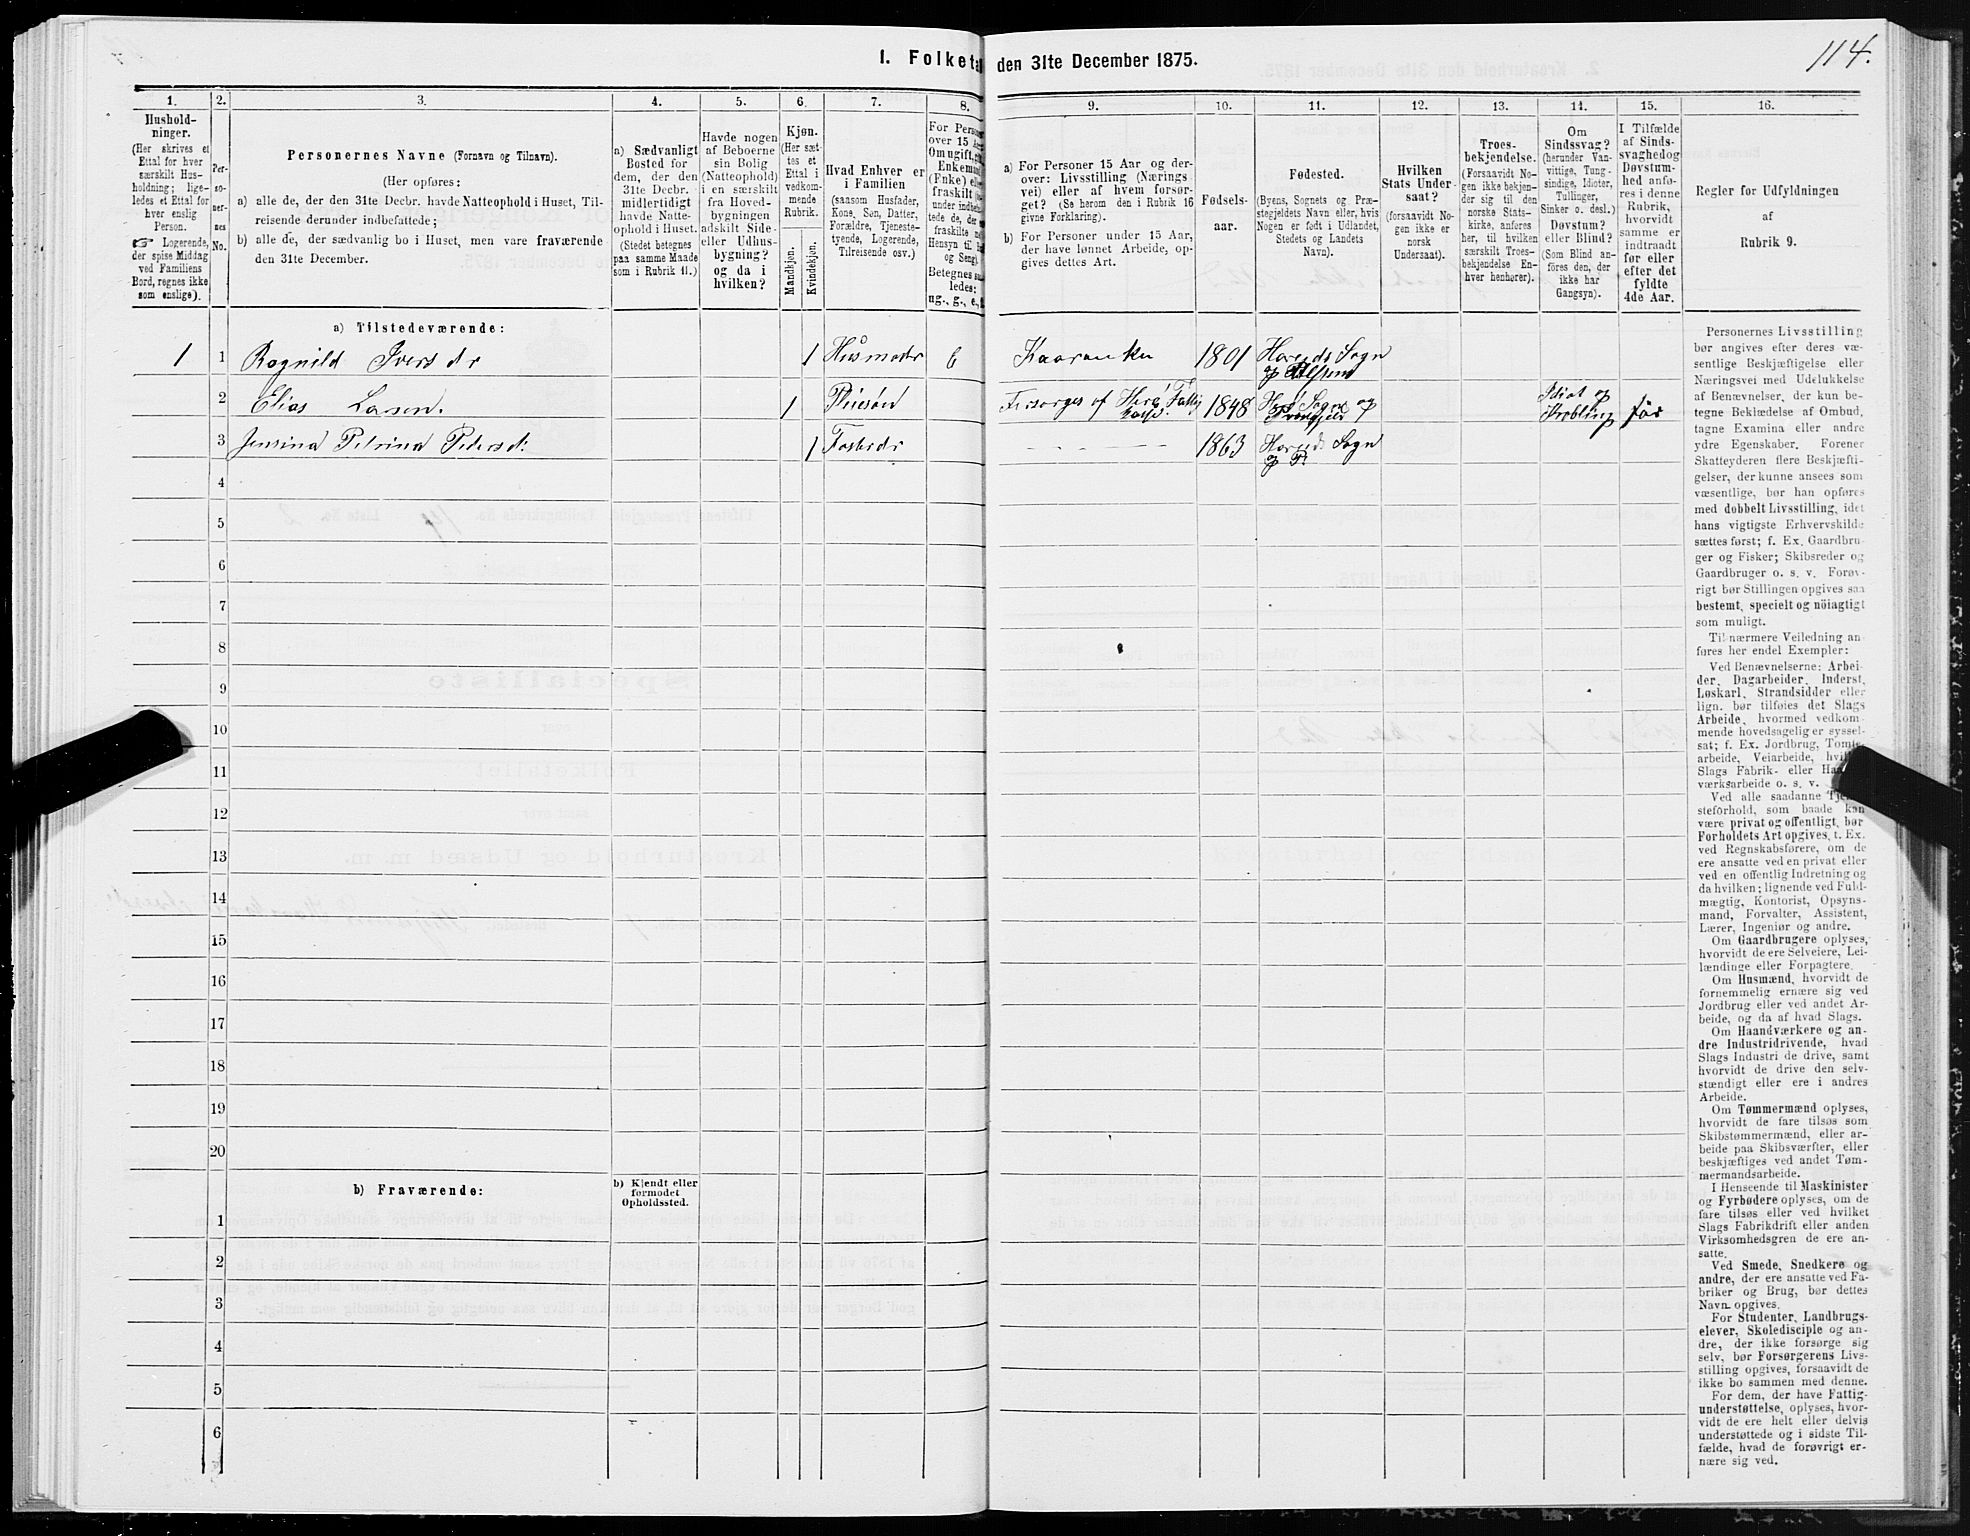 114.
1. Folketa den 31te December 1875.
1. 2. 3. 4. 5. 6. 7. 8. 9. 10. 11. 12. 13. 14. 15. 16.
Hushold-
ninger.
(Her skrives et
Ettal for hver
særskilt Hus-
holdning; lige-
ledes et Ettal for
hver enslig
Person.
☞ Logerende,
der spise Middag
ved Familiens
Bord, regnes ikke
som enslige).
Per-
so-
ner-
nes
No.
Personernes Navne (Fornavn og Tilnavn).
(Her opføres:
a) alle de, der den 31te Decbr. havde Natteophold i Huset, Til-
reisende derunder indbefattede;
b) alle de, der sædvanlig bo i Huset, men vare fraværende
den 31te December.
a) Sædvanligt
Bosted for
dem, der den
31te Decbr.
midlertidigt
havde Natte-
ophold i Huset.
(Stedet betegnes
paa samme Maade
som i Rubrik 11.)
Havde nogen
af Beboerne
sin Bolig
(Natteophold)
i en særskilt
fra Hoved-
bygningen
adskilt Side-
eller Udhus-
bygning?
og da i
hvilken?
Kjøn.
(Her sæt-
tes et
Ettal i
vedkom-
mende
Rubrik.
Mandkjøn.
Kvindekjøn.
Hvad Enhver er
i Familien
(saasom Husfader,
Kone, Søn, Datter,
Forældre, Tjeneste-
tyende, Logerende,
Tilreisende osv.)
For Perso
over 15 Aa
Om ugift, g
Enkema
(Enke) el
fraskilt
under indbe
tede de, der
fraskilte
Hensyn til B
og Seng).
Betegnes saa
ledes:
ug., g., e., f.
a) For Personer 15 Aar og der-
over: Livsstilling (Nærings
vei) eller af hvem forsør-
get? (Se herom den i Rubrik 16
givne Forklaring).
b) For Personer under 15 Aar,
der have lønnet Arbeide, op-
gives dettes Art.
Fødsels-
aar.
Fødested.
(Byens, Sognets og Præ-
stegjeldets Navn eller, hvis
Nogen er født i Udlandet,
Stedets og Landets
Navn).
Hvilken
Stats Under-
saat?
(forsaavidt No-
gen ikke er
norsk
Undersaat).
Troes-
bekjendelse.
(Forsaavidt No-
gen ikke bekjen-
der sig til den
norske Stats-
kirke, anføres
her, til hvilken
særskilt Troes-
bekjendelse En-
hver henhører).
Om
Sindssvag?
(herunder Van-
vittige, Tung-
sindige, Idioter,
Tullinger,
Sinker o. desl.)
Døvstum?
eller Blind?
(Som Blind an-
føres den, der
ikke har
Gangsyn).
I Tilfælde
af Sinds-
svaghed og
Døvstum-
hed anfø-
res i denne
Rubrik,
hvorvidt
samme er
indtraadt
før eller
efter det
fyldte
4de Aar.
Regler for Udfyldningen
af
Rubrik 9.
a) Tilstedeværende:
1 1 Ragnild Ivers dr 1 Husmoder E 1801 Hareids Sogn
og Ulfsten
2 Elias Lasen. 1 Pleiesøn Forsørges af 1848 Sogn og
Idiot og før
3 Jensina Petrina Peders d. 1 Fosterdr - - - 1863 Hareids Sogn
og P.
4
5
6
7
8
9
10
11
12
13
14
15
16
17
18
19
20
b) Fraværende:
b) Kjendt eller
formodet
Opholdssted.
1
2
3
4
5
6
Personernes Livsstilling
bør angives efter deres væ-
sentlige Beskjæftigelse eller
Næringsvei med Udelukkelse
af Benævnelser, der kun be-
tegne Beklædelse af Ombud,
tagne Examina eller andre
ydre Egenskaber. Forener
Skatteyderen flere Beskjæfti-
gelser, der kunne ansees som
væsentlige, bør han opføres
med dobbelt Livsstilling, idet
hans vigtigste Erhvervskilde
sættes først; f. Ex. Gaardbru-
ger og Fisker; Skibsreder og
Gaardbruger o. s. v. Forøv-
rigt bør Stillingen opgives saa
bestemt, specielt og nöiagtigt
som muligt.
Til nærmere Veiledning an
føres her endel Exempler:
Ved Benævnelserne: Arbei-
der, Dagarbeider, Inderst,
Løskarl, Strandsidder eller
lign. bør tilføies det Slags
Arbeide, hvormed vedkom-
mende hovedsagelig er syssel-
sat; f. Ex. Jordbrug, Tomte-
arbeide, Veiarbeide, hvil
Slags Fabrik- eller Haa
værksarbeide o. s. v.
Ved alle saadanne Tje
steforhold, som baade kan
være privat og offentligt, bør
Forholdets Art opgives, t. Ex.
ved Regnskabsførere, om de
ere ansatte ved en privat eller
ved en offentlig Indretning og
da hvilken; lignende ved Fuld-
mægtig, Kontorist, Opsyns-
mand, Forvalter, Assistent,
Lærer, Ingeniør og andre.
Om Gaardbrugere oplyses,
hvorvidt de ere Selveiere, Lei-
lændinge eller Forpagtere.
Om Husmænd, hvorvidt de
fornemmelig ernære sig ved
Jordbrug eller ved andet Ar-
beide, og da af hvad Slags.
Om Haandværkere og an-
dre Industridrivende, hvad
Slags Industri de drive, samt
hvorvidt de drive den selv-
stændigt eller ere i andres
Arbeide.
Om Tømmermænd oplyses,
hvorvidt de fare tilsøs som
Skibstømmermænd, eller ar-
beide paa Skibsværfter, eller
beskjæftiges ved andet Tøm-
mermandsarbeide.
I Henseende til Maskinister
og Fyrbødere oplyses, om de
fare tilsøs eller ved hvilket
Slags Fabrikdrift eller anden
Virksomhedsgren de ere an-
satte.
Ved Smede, Snedkere og
andre, der ere ansatte ved Fa-
briker og Brug, bør dettes
Navn opgives.
For Studenter, Landbrugs-
elever, Skoledisciple og an-
dre, der ikke forsørge sig
selv, bør Forsørgerens Livs-
stilling opgives, forsaavidt de
ikke bo sammen med denne.
For dem, der have Fattig-
understøttelse, oplyses, hvor-
vidt de ere helt eller delvis
understøttede og i sidste Til-
fælde, hvad de forøvrigt er-
nære sig ved.